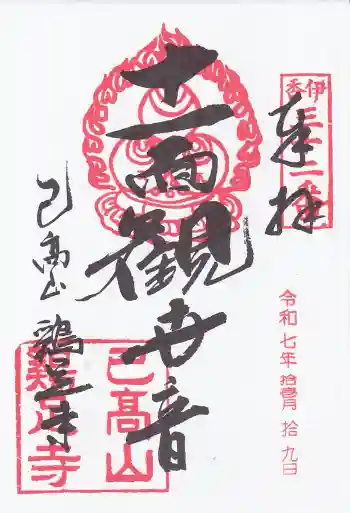 伊香
奉拝
令和七年拾壹月拾九日
十一面観世音
己高山 鶏足寺
己髙山
雞足寺